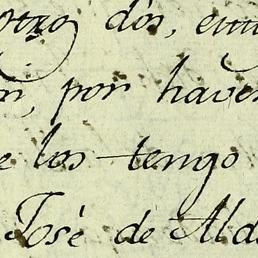 otro dos, en
por haver
los tengo
José de Ald